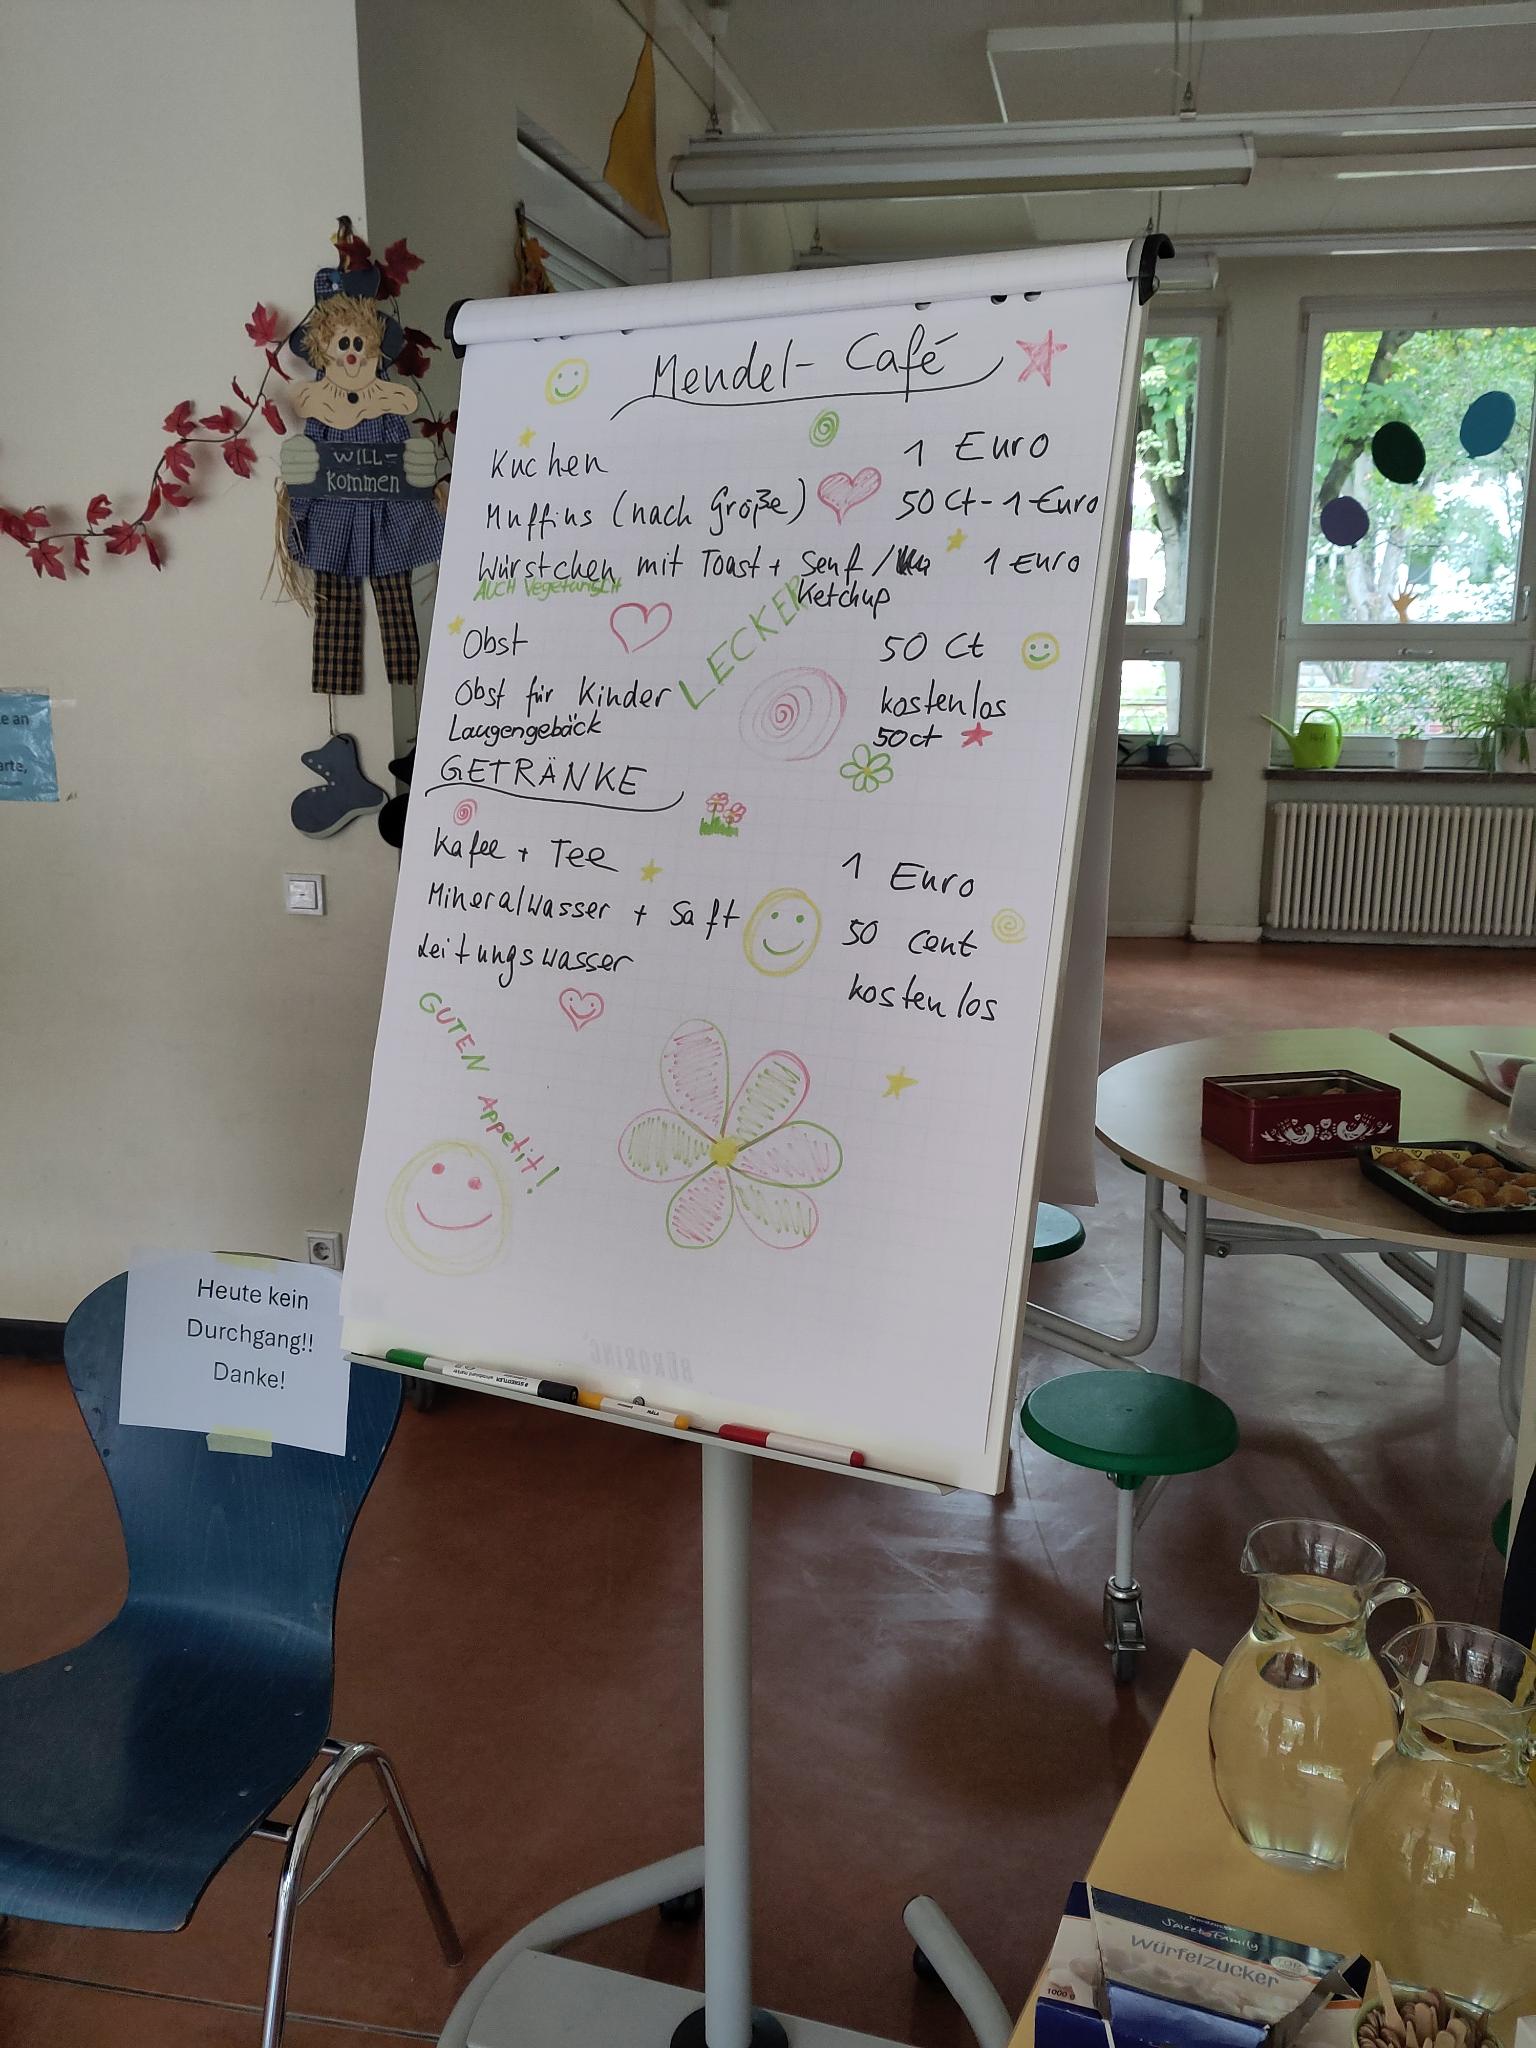 Mendel-Café
Kuchen 1 Euro
Muffins (nach Größe) 50 Ct - 1 Euro
Würstchen mit Toast + Senf / 1 Euro
Ketchup
AUCH Vegetarisch
LECKER
Obst 50 Ct
Obst für Kinder kostenlos
Laugengebäck 50ct
GETRÄNKE
Kafee + Tee 1 Euro
Mineralwasser + Saft 50 cent
Leitungswasser kostenlos
GUTEN Appetit!
WILL-
kommen
e an
arte,
Heute kein
Durchgang!!
Danke!
BÜRORING
STAEDTLER
Sweet Family
Würfelzucker
1000 g